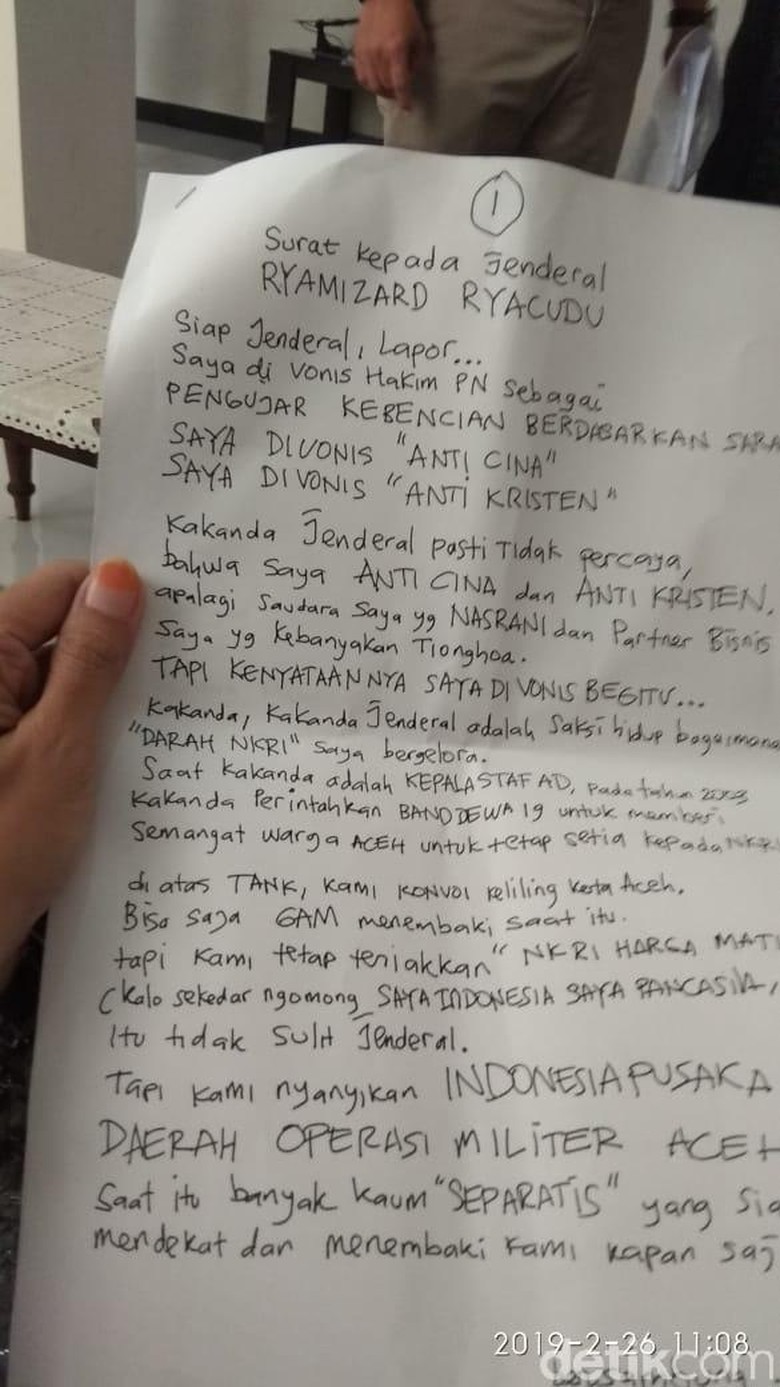 1
Surat kepada Jenderal
RYAMIZARD RYACUDU
Siap Jenderal, Lapor...
Saya di vonis Hakim PN sebagai
PENGUJAR KEBENCIAN BERDASARKAN SARA
SAYA DIVONIS "ANTI CINA"
SAYA DIVONIS "ANTI KRISTEN"
Kakanda Jenderal pasti Tidak percaya,
bahwa saya ANTI CINA dan ANTI KRISTEN,
apalagi saudara saya yg NASRANI dan Partner Bisnis
saya yg kebanyakan Tionghoa.
TAPI KENYATAANNYA SAYA DIVONIS BEGITU...
Kakanda, Kakanda Jenderal adalah saksi hidup bagaimana
"DARAH NKRI" saya bergelora.
Saat kakanda adalah KEPALA STAF AD, pada tahun 2003
kakanda Perintahkan BAND DEWA 19 untuk memberi
semangat warga ACEH untuk tetap setia kepada NKRI
di atas TANK, kami KONVOI keliling kota Aceh.
Bisa saja GAM menembaki saat itu.
tapi kami tetap teriakkan "NKRI HARGA MATI
(kalo sekedar ngomong SAYA INDONESIA SAYA PANCASILA,
Itu tidak sulit Jenderal.
Tapi kami nyanyikan INDONESIA PUSAKA
DAERAH OPERASI MILITER ACEH
Saat itu banyak kaum "SEPARATIS" yang sia
mendekat dan menembaki kami kapan saj
2019-2-26 11:08
detikcom